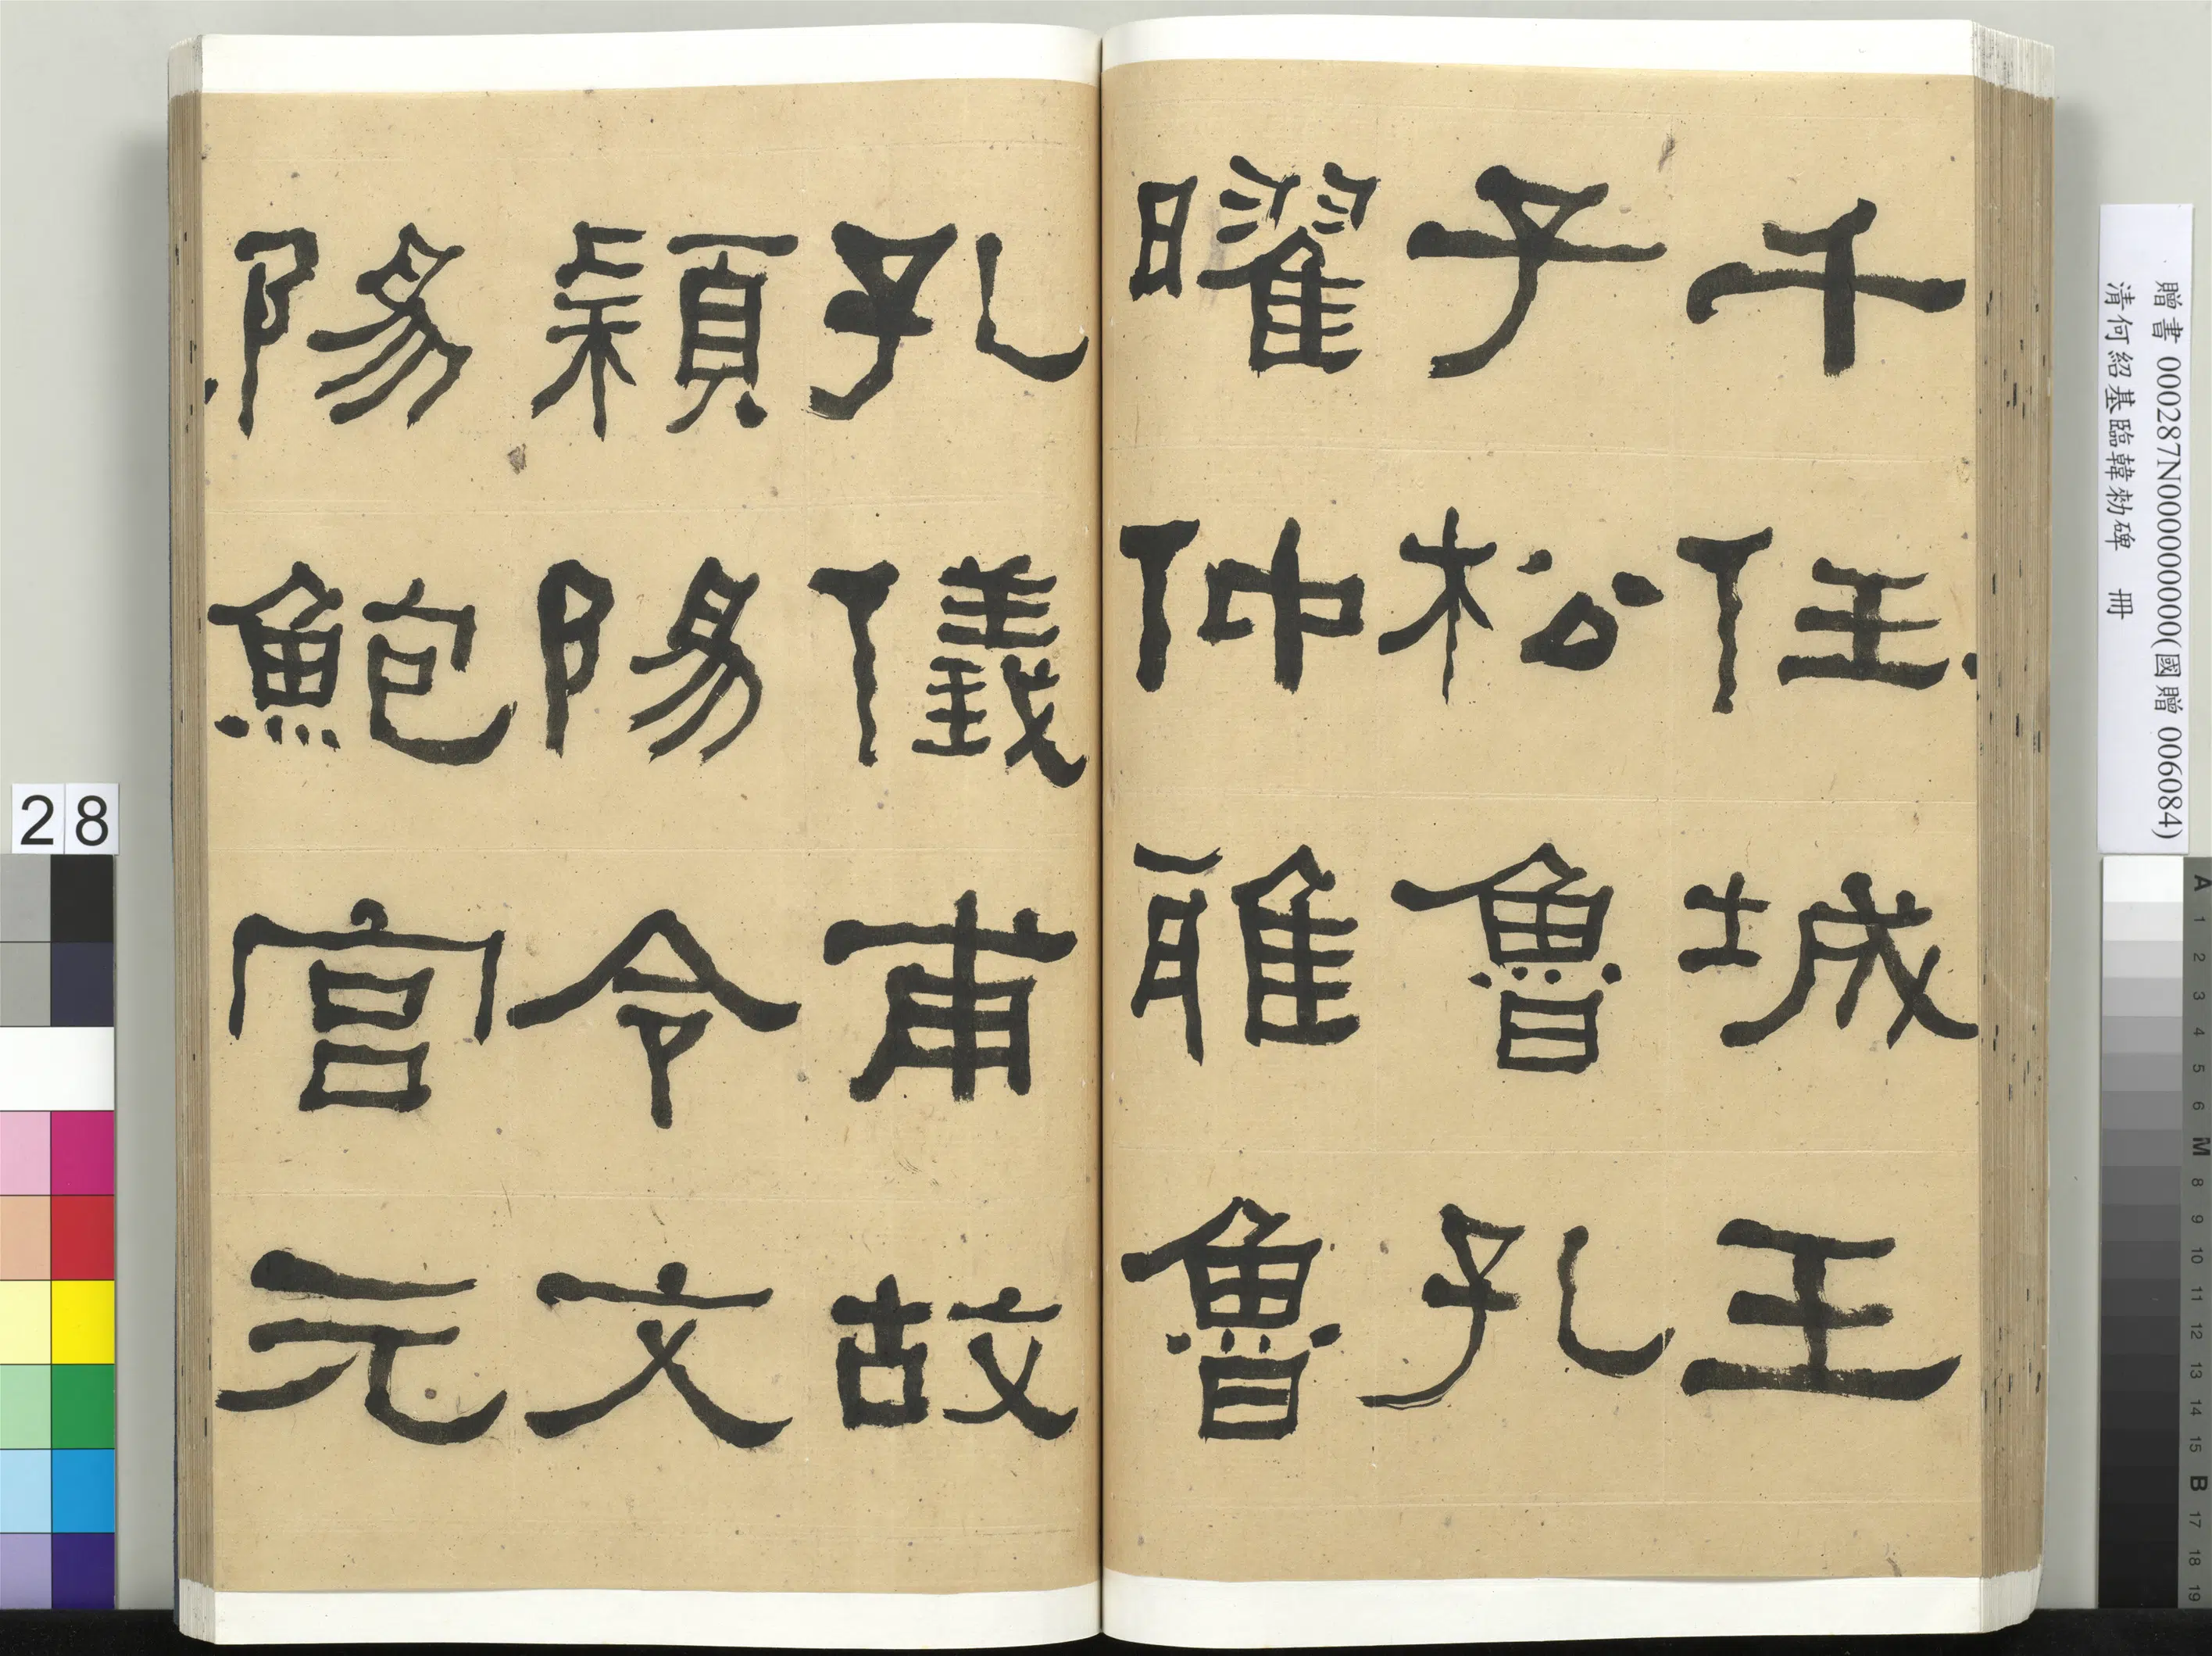 千任城王
子松魯孔
曜仲雅魯
孔儀甫故
潁陽令文
陽鮑宮元
28
贈書 000287N000000000(國贈 006084)
清何紹基臨韓勑碑 冊
A 1 2 3 4 5 6 M 8 9 10 11 12 13 14 15 B 17 18 19